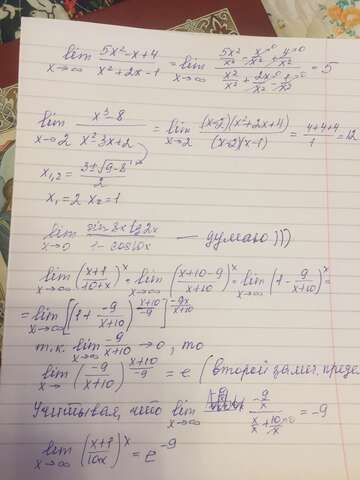 lim x→∞ (5x² - x + 4)/(x² + 2x - 1) = lim x→∞ (5x²/x² - x/x² + 4/x²)/(x²/x² + 2x/x² - 1/x²) = 5
lim x→2 (x³ - 8)/(x² - 3x + 2) = lim x→2 (x-2)(x² + 2x + 4)/(x-2)(x-1) = (4+4+4)/1 = 12
x₁,₂ = (3±√(9-8))/2
x₁ = 2 x₂ = 1
lim x→0 (sin 3x tg 2x)/(1 - cos 10x) — думаю)))
lim x→∞ ((x+1)/(10+x))ˣ = lim x→∞ ((x+10-9)/(x+10))ˣ = lim x→∞ (1 - 9/(x+10))ˣ =
= lim x→∞ [(1 + -9/(x+10))^((x+10)/-9)]^(-9x/(x+10))
т.к. lim x→∞ -9/(x+10) → 0, то
lim x→ (-9/(x+10))^((x+10)/-9) = e (второй замеч. преде
Учитывая, что lim x→∞ (-9/x)/(x/x + 10/x) = -9
lim x→∞ ((x+1)/(10x))ˣ = e⁻⁹